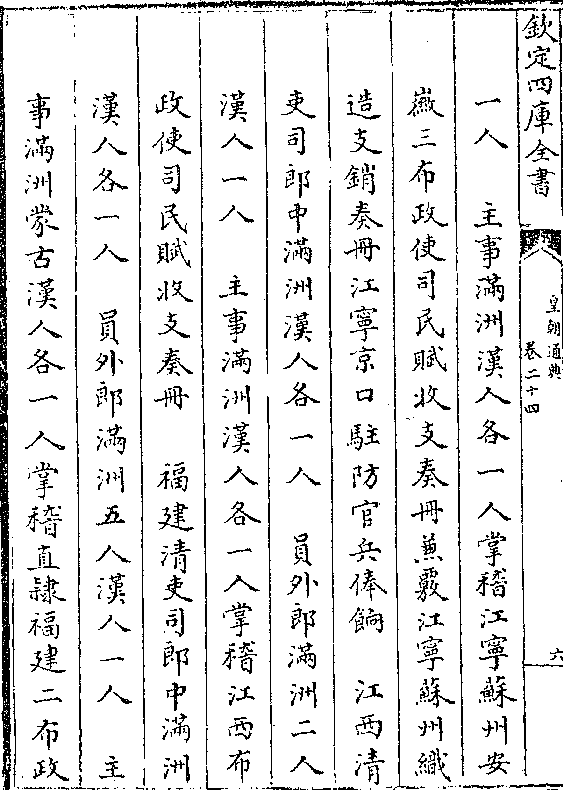 欽定四庫全書
皇朝通典
卷二十四
六
一人　主事滿洲漢人各一人掌稽江寧蘇州安
徽三布政使司民賦收支奏冊兼覈江寧蘇州織
造支銷奏冊江寧京口駐防官兵俸餉　江西清
吏司郎中滿洲漢人各一人　員外郎滿洲二人
漢人一人　主事滿洲漢人各一人掌稽江西布
政使司民賦收支奏冊　福建清吏司郎中滿洲
漢人各一人　員外郎滿洲五人漢人一人　主
事滿洲蒙古漢人各一人掌稽直隸福建二布政